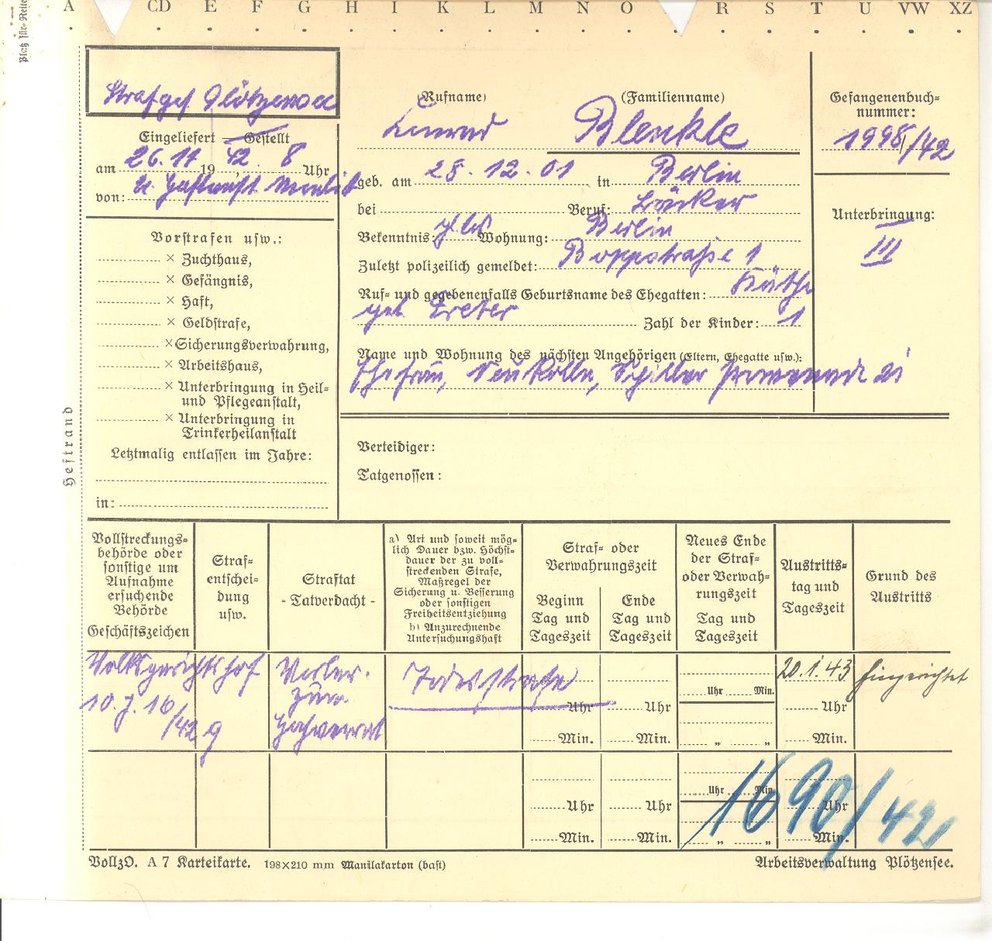 A CD E F G H I K L M N O R S T U VW XZ
Platz für Reite
Strafgef Plötzensee
(Rufname) (Familienname)
Conrad Blenkle
Gefangenenbuch-
nummer:
1998/42
Eingeliefert — Gestellt
am 26.11 1942, 8 Uhr
von: U Haftanst Moabit
geb. am 28.12.01 in Berlin
bei Beruf: Bäcker
Bekenntnis: glbs Wohnung: Berlin
Zuletzt polizeilich gemeldet: Boppstraße 1
Ruf- und gegebenenfalls Geburtsname des Ehegatten: Käthe
geb Zahl der Kinder: 1
Name und Wohnung des nächsten Angehörigen (Eltern, Ehegatte usw.):
Ehefrau, Neukölln, Schiller Promenade
Unterbringung:
III
Vorstrafen usw.:
× Zuchthaus,
× Gefängnis,
× Haft,
× Geldstrafe,
× Sicherungsverwahrung,
× Arbeitshaus,
× Unterbringung in Heil-
und Pflegeanstalt,
× Unterbringung in
Trinkerheilanstalt
Letztmalig entlassen im Jahre:
in:
Heftrand
Verteidiger:
Tatgenossen:
Vollstreckungs-
behörde oder
sonstige um
Aufnahme
ersuchende
Behörde
Geschäftszeichen
Straf-
entschei-
dung
usw.
Straftat
- Tatverdacht -
a) Art und soweit mög-
lich Dauer bzw. Höchst-
dauer der zu voll-
streckenden Strafe,
Maßregel der
Sicherung u. Besserung
oder sonstigen
Freiheitsentziehung
b) Anzurechnende
Untersuchungshaft
Straf- oder
Verwahrungszeit
Beginn
Tag und
Tageszeit
Ende
Tag und
Tageszeit
Neues Ende
der Straf-
oder Verwah-
rungszeit
Tag und
Tageszeit
Austritts-
tag und
Tageszeit
Grund des
Austritts
Volksgerichtshof
10 J. 16/42 g
Vorber.
zum
Hochverrat
Todesstrafe
20.1.43 hingerichtet
Uhr Uhr Uhr Min. Uhr
Min. Min. " " Min.
Uhr Uhr Uhr Min. Uhr
Min. Min. " " Min.
1690/42
VollzO. A 7 Karteikarte. 198×210 mm Manilakarton (bast)
Arbeitsverwaltung Plötzensee.